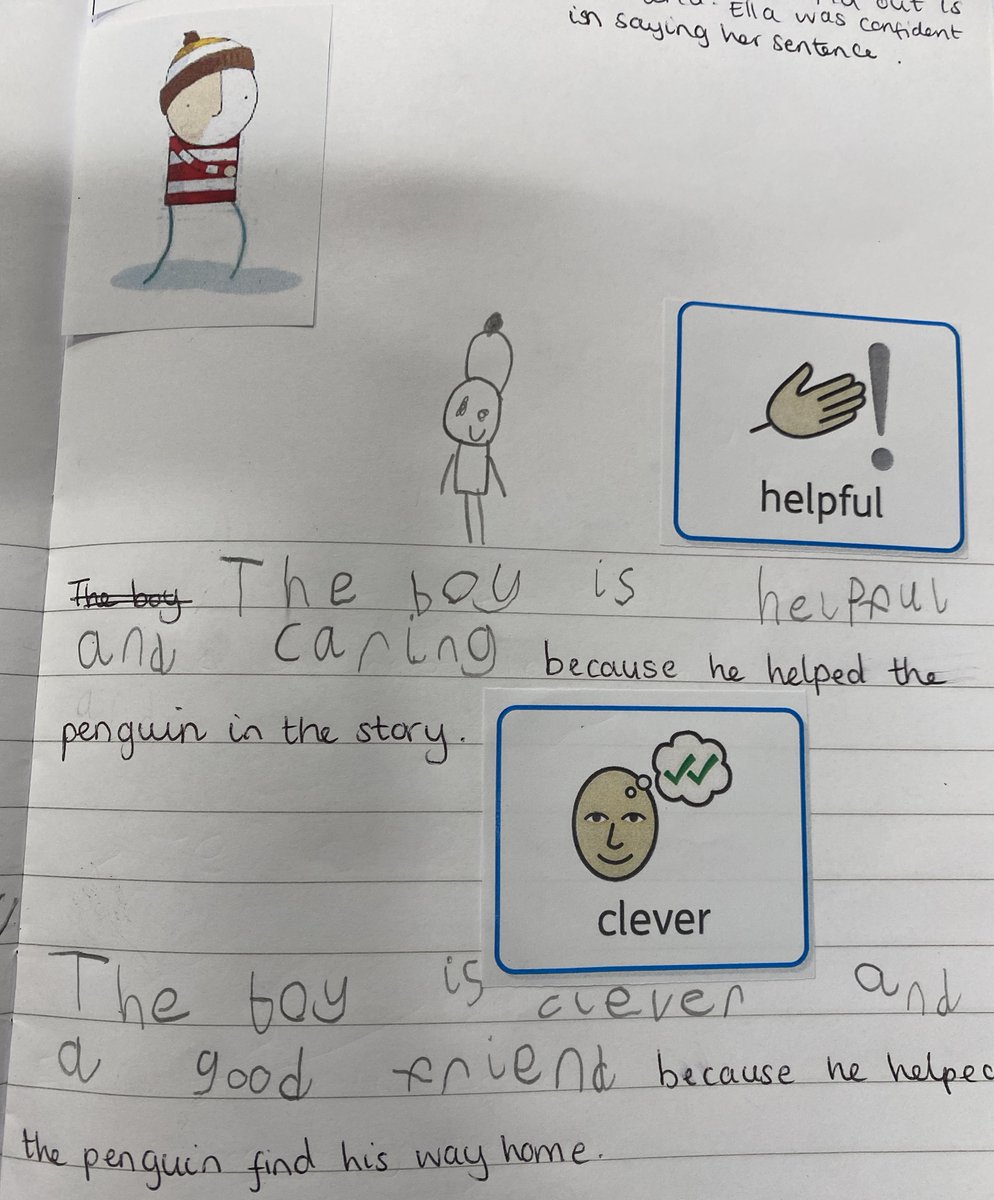 out is
Ella was confident
in saying her sentence.
helpful
The boy The boy is helpful
and caring because he helped the
penguin in the story.
clever
The boy is clever and
a good friend because he helped
the penguin find his way home.